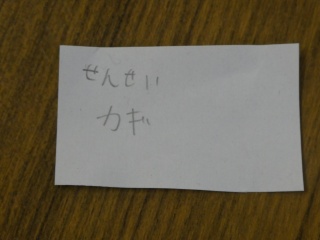 せんせい
カギ